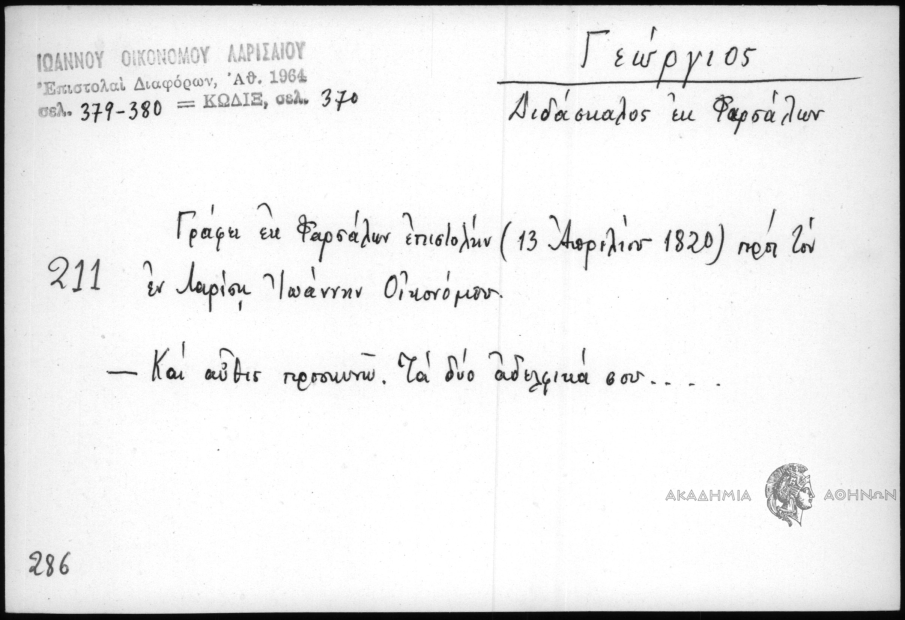 ΙΩΑΝΝΟΥ ΟΙΚΟΝΟΜΟΥ ΛΑΡΙΣΑΙΟΥ
Ἐπιστολαὶ Διαφόρων, Ἀθ. 1964
σελ. 379-380 = ΚΩΔΙΞ, σελ. 370
Γεώργιος
Διδάσκαλος ἐκ Φαρσάλων
Γράφει ἐκ Φαρσάλων ἐπιστολὴν (13 Ἀπριλίου 1820) πρὸς τὸν
211
ἐν Λαρίσῃ Ἰωάννην Οἰκονόμου.
— Καὶ αὖθις προσκυνῶ. Τὰ δύο ἀδελφικά σου.....
ΑΚΑΔΗΜΙΑ ΑΘΗΝΩΝ
286